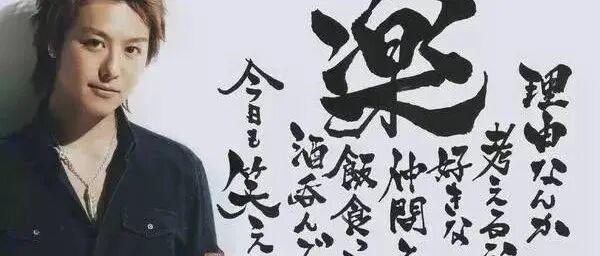 楽
理由なんか
考えるな
好きな
仲間と
飯食っ
酒呑んで
今日も笑え